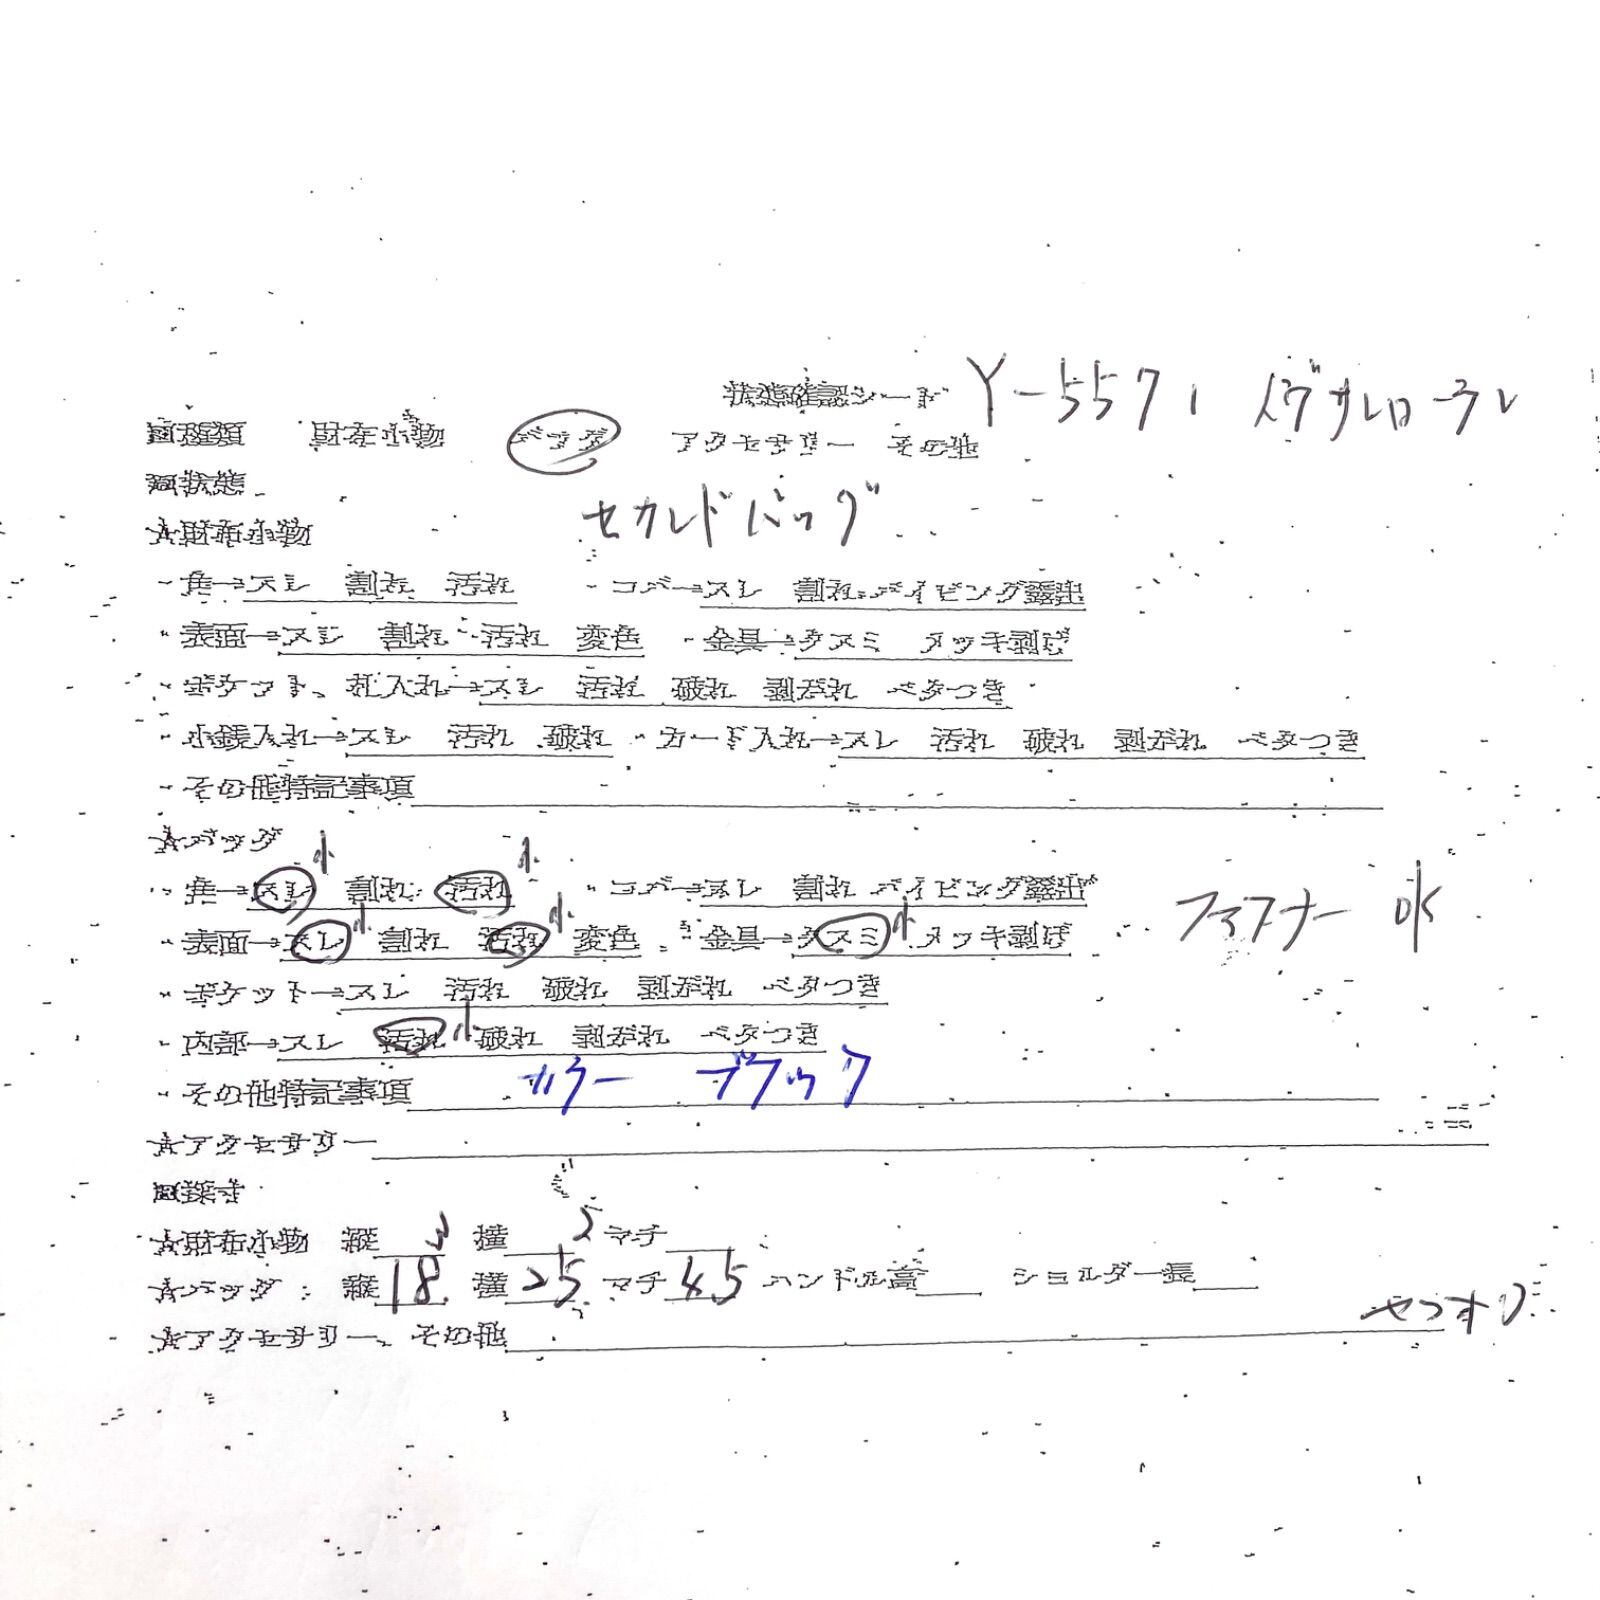 状態確認シート Y-5571 イヴサンローラン
回種類 財布小物 バッグ アクセサリー その他
回状態
セカンドバッグ
☆財布小物
・角→スレ 割れ 汚れ ・コバ→スレ 割れ パイピング露出
・表面→スレ 割れ 汚れ 変色 ・金具→クスミ メッキ剥げ
・ポケット、札入れ→スレ 汚れ 破れ 剥がれ ベタつき
・小銭入れ→スレ 汚れ 破れ ・カード入れ→スレ 汚れ 破れ 剥がれ ベタつき
・その他特記事項
☆バッグ
小 小
・角→スレ 割れ 汚れ ・コバ→スレ 割れ パイピング露出
ファスナー OK
・表面→スレ小 割れ 汚れ小 変色 ・金具→クスミ小 メッキ剥げ
・ポケット→スレ 汚れ 破れ 剥がれ ベタつき
・内部→スレ 汚れ小 破れ 剥がれ ベタつき
・その他特記事項 カラー ブラック
☆アクセサリー
回採寸
☆財布小物 縦 横 マチ
☆バッグ 縦 18 横 25 マチ 4.5 ハンドル高 ショルダー長
☆アクセサリー、その他